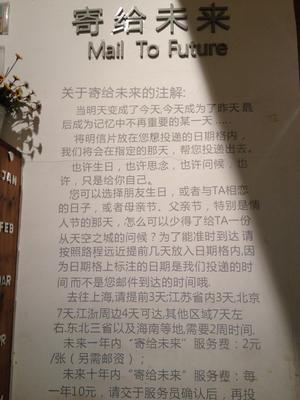 寄给未来
Mail To Future
关于寄给未来的注解:
当明天变成了今天,今天成为了昨天 最
后成为记忆中不再重要的某一天 ......
将明信片放在您想投递的日期格内，
我们将会在指定的那天，帮您投递出去。
也许生日，也许思念，也许问候，也
许，只是给你自己。
您可以选择朋友生日，或者与TA相恋
的日子，或者母亲节、父亲节，特别是情
人节的那天，怎么可以少得了给TA一份
从天空之城的问候？为了能准时到达 请
按照路程远近提前几天放入日期格内,因
为日期格上标注的日期是我们投递的时
间 而不是您邮件到达的时间哦.
去往上海,请提前3天;江苏省内3天,北京
7天,江浙周边4天可达,其他区域7天左
右.东北三省以及海南等地,需要2周时间.
未来一年内“寄给未来”服务费：2元
/张（另需邮资）；
未来十年内“寄给未来”服务费：每
一年10元，请交于服务员确认后，再投
JAN
FEB
MAR